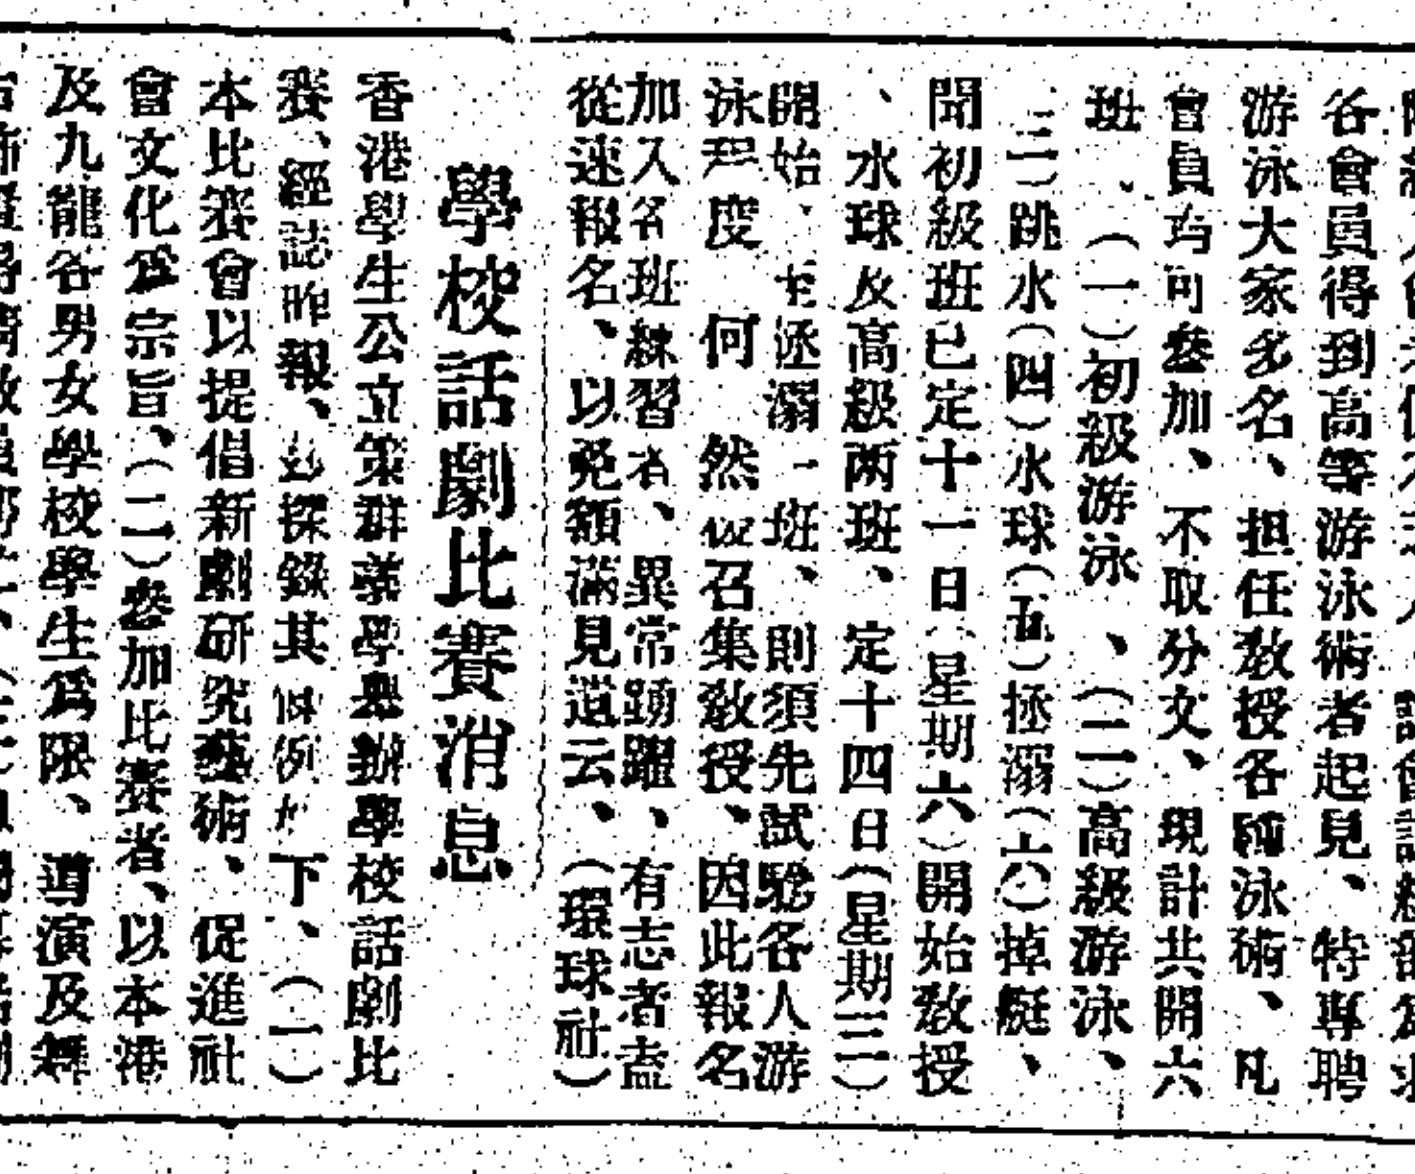 各會員得到高等游泳術者起見、特專聘
游泳大家多名、担任教授各種泳術、凡
會員均可參加、不取分文、現計共開六
班、(一)初級游泳、(二)高級游泳、
(三)跳水(四)水球(五)拯溺(六)掉艇、
聞初級班已定十一日(星期六)開始教授
、水球及高級兩班、定十四日(星期三)
開始、至拯溺一班、則須先試驗各人游
泳程度 何 然後召集教授、因此報名
加入各班練習者、異常踴躍、有志者盍
從速報名、以免額滿見遺云、(環球社)
學校話劇比賽消息
香港學生公立策群義學舉辦學校話劇比
賽、經誌昨報、玆探錄其 例如下、(一)
本比賽會以提倡新劇研究藝術、促進社
會文化爲宗旨、(二)參加比賽者、以本港
及九龍各男女學校學生爲限、導演及舞